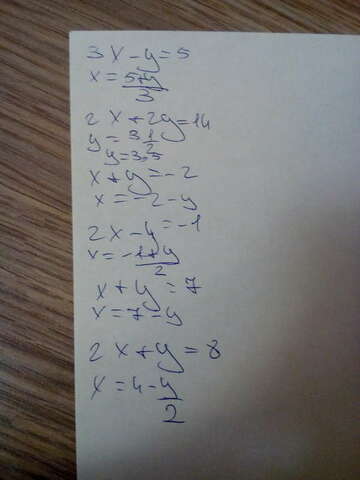 3x-y=5
x=(5+y)/3
2x+2y=14
y=3 1/2
y=3,5
x+y=-2
x=-2-y
2x-y=-1
x=(-1+y)/2
x+y=7
x=7-y
2x+y=8
x=4-y/2